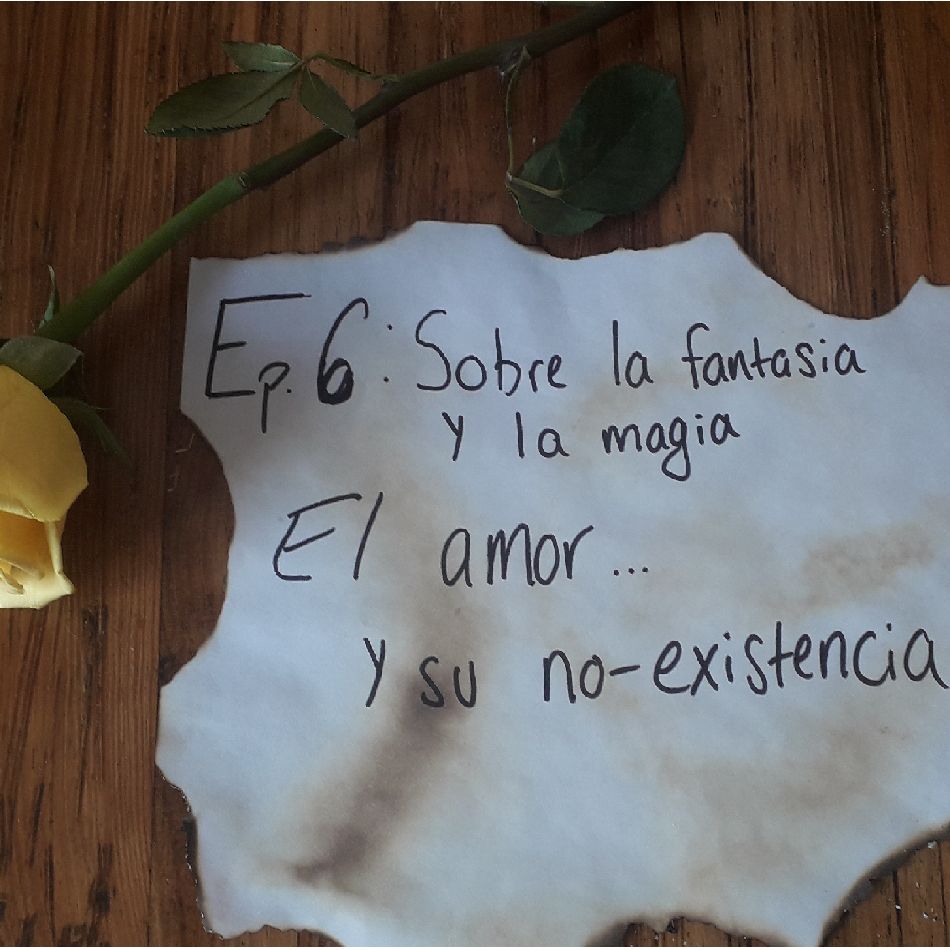 Ep. 6: Sobre la fantasia
y la magia
El amor...
y su no-existencia